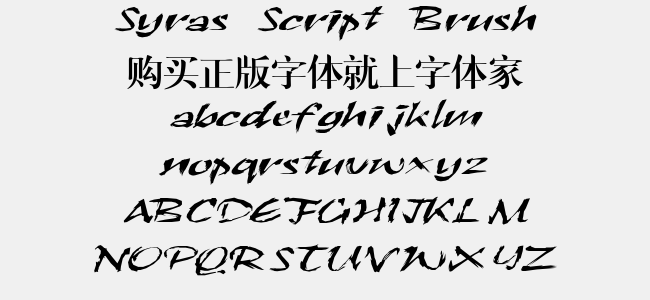 Syras Script Brush
购买正版字体就上字体家
abcdefghijklm
nopqrstuvwxyz
ABCDEFGHIJKLM
NOPQRSTUVWXYZ